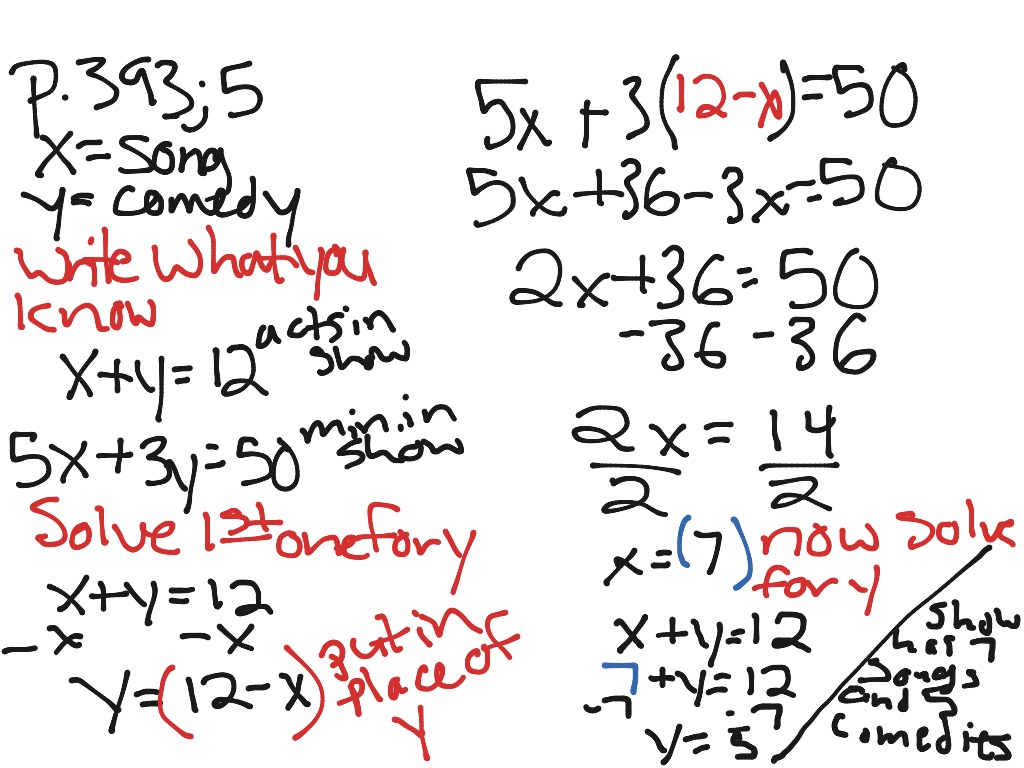 p. 393; 5
x = song
y = comedy
write what you
know
x+y=12 acts in
show
5x+3y=50 min. in
show
Solve 1st one for y
x+y=12
-x -x
y=(12-x) put in
place of
y
5x+3(12-x)=50
5x+36-3x=50
2x+36=50
-36 -36
2x = 14
2 2
x=(7) now solve
for y
x+y=12
7+y=12
-7 -7
y=5
show
has 7
songs
and 5
comedies